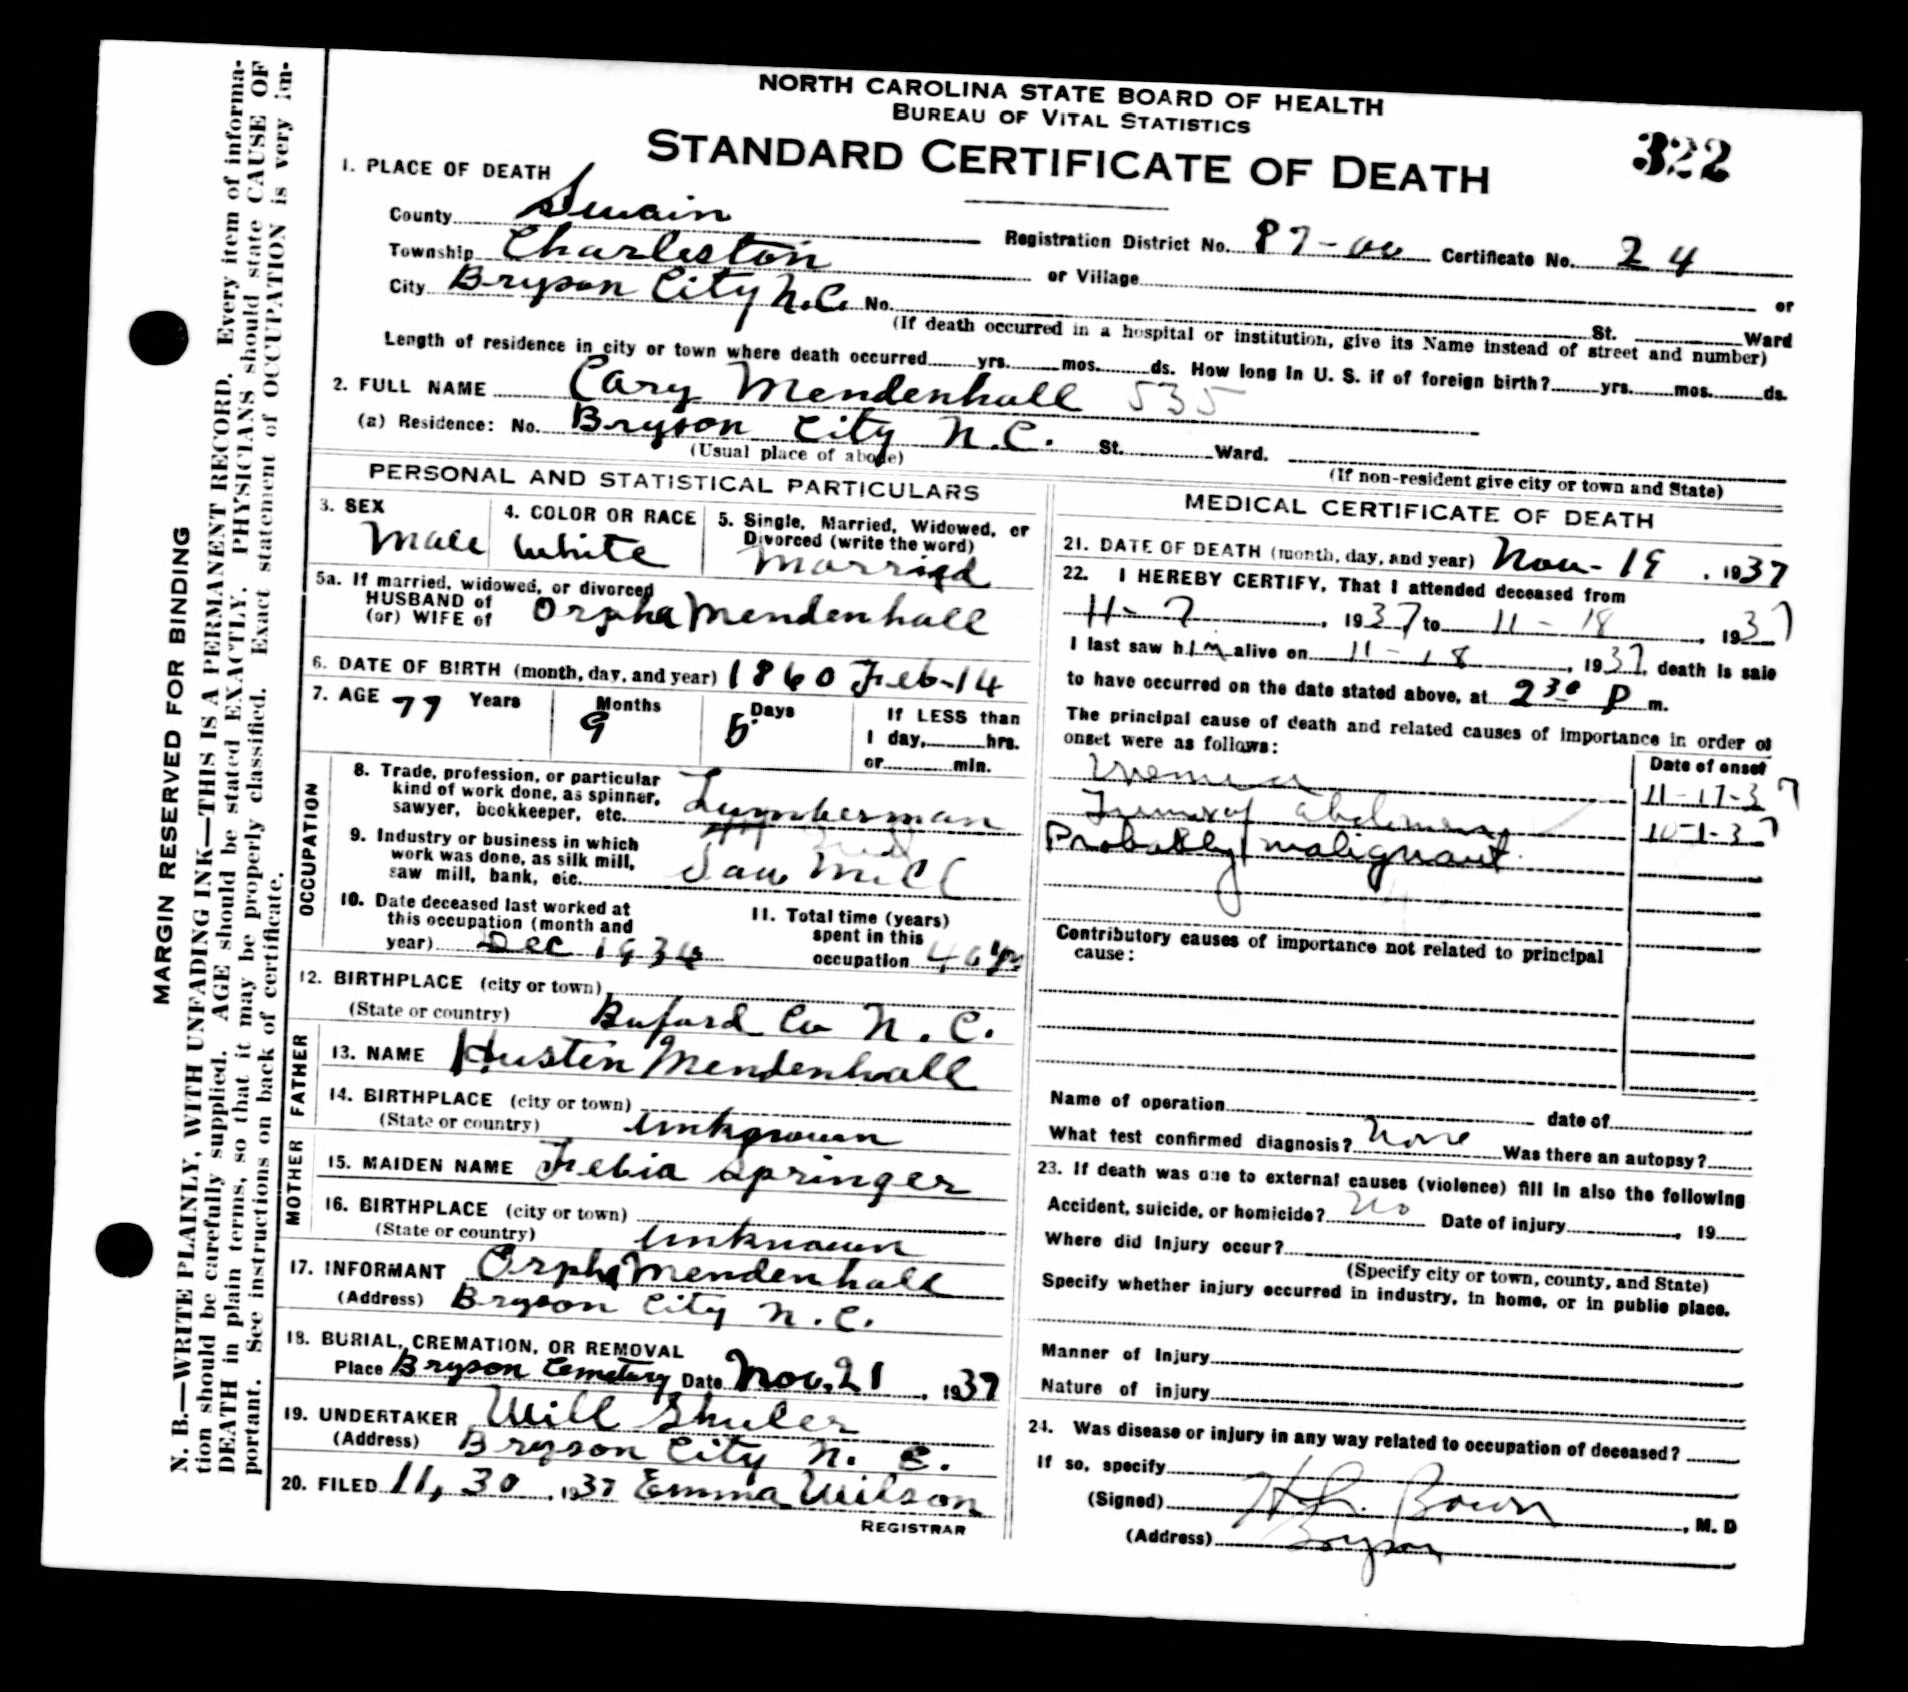 NORTH CAROLINA STATE BOARD OF HEALTH
BUREAU OF VITAL STATISTICS
STANDARD CERTIFICATE OF DEATH
322
1. PLACE OF DEATH
County Swain Registration District No. 87-00 Certificate No. 24
Township Charleston or Village or
City Bryson City N.C. No. St. Ward
(If death occurred in a hospital or institution, give its Name instead of street and number)
Length of residence in city or town where death occurred yrs. mos. ds. How long in U. S. if of foreign birth? yrs. mos. ds.
2. FULL NAME Cary Mendenhall 535
(a) Residence: No. Bryson City N.C. St. Ward.
(Usual place of abode) (If non-resident give city or town and State)
PERSONAL AND STATISTICAL PARTICULARS
3. SEX Male
4. COLOR OR RACE White
5. Single, Married, Widowed, or
Divorced (write the word)
Married
5a. If married, widowed, or divorced
HUSBAND of
(or) WIFE of Orpha Mendenhall
6. DATE OF BIRTH (month, day, and year) 1860 Feb-14
7. AGE 77 Years 9 Months 5 Days If LESS than
1 day, hrs.
or min.
OCCUPATION
8. Trade, profession, or particular
kind of work done, as spinner,
sawyer, bookkeeper, etc. Lumberman
9. Industry or business in which
work was done, as silk mill,
saw mill, bank, etc. Saw Mill
10. Date deceased last worked at
this occupation (month and
year) Dec 1934
11. Total time (years)
spent in this
occupation 40 yr
12. BIRTHPLACE (city or town)
(State or country) Buford Co N.C.
FATHER
13. NAME Hustin Mendenhall
14. BIRTHPLACE (city or town)
(State or country) Unknown
MOTHER
15. MAIDEN NAME Febia Springer
16. BIRTHPLACE (city or town)
(State or country) Unknown
17. INFORMANT Orpha Mendenhall
(Address) Bryson City N.C.
18. BURIAL, CREMATION, OR REMOVAL
Place Bryson Cemetery Date Nov. 21, 1937
19. UNDERTAKER Will Shuler
(Address) Bryson City N. C.
20. FILED 11, 30, 1937 Emma Wilson
REGISTRAR
MEDICAL CERTIFICATE OF DEATH
21. DATE OF DEATH (month, day, and year) Nov- 19, 1937
22. I HEREBY CERTIFY, That I attended deceased from
11-7, 1937 to 11-18, 1937
I last saw him alive on 11-18, 1937, death is said
to have occurred on the date stated above, at 2 30 P m.
The principal cause of death and related causes of importance in order of
onset were as follows:
Date of onset
Uremia 11-17-37
Tumor of abdomen 10-1-37
Probably malignant
Contributory causes of importance not related to principal
cause:
Name of operation date of
What test confirmed diagnosis? None Was there an autopsy?
23. If death was due to external causes (violence) fill in also the following
Accident, suicide, or homicide? No Date of injury, 19
Where did injury occur?
(Specify city or town, county, and State)
Specify whether injury occurred in industry, in home, or in public place.
Manner of Injury
Nature of injury
24. Was disease or injury in any way related to occupation of deceased?
If so, specify
(Signed) , M. D
(Address) Bryson
MARGIN RESERVED FOR BINDING
N. B.—WRITE PLAINLY, WITH UNFADING INK—THIS IS A PERMANENT RECORD. Every item of informa-
tion should be carefully supplied. AGE should be stated EXACTLY. PHYSICIANS should state CAUSE OF
DEATH in plain terms, so that it may be properly classified. Exact statement of OCCUPATION is very im-
portant. See instructions on back of certificate.